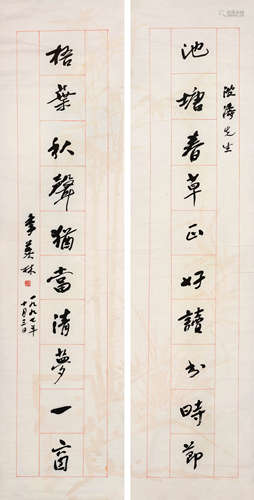 先生
池塘春草正好讀书時節
梧葉秋聲猶當清夢一窗
季羡林
一九九七年
十月三日